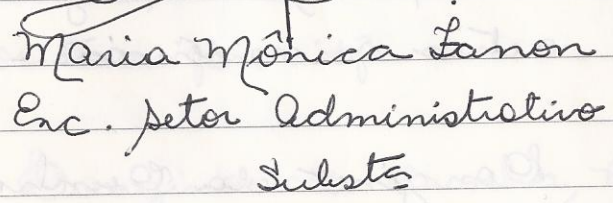 Maria Mônica Zanon
Enc. setor administrativo
Substª